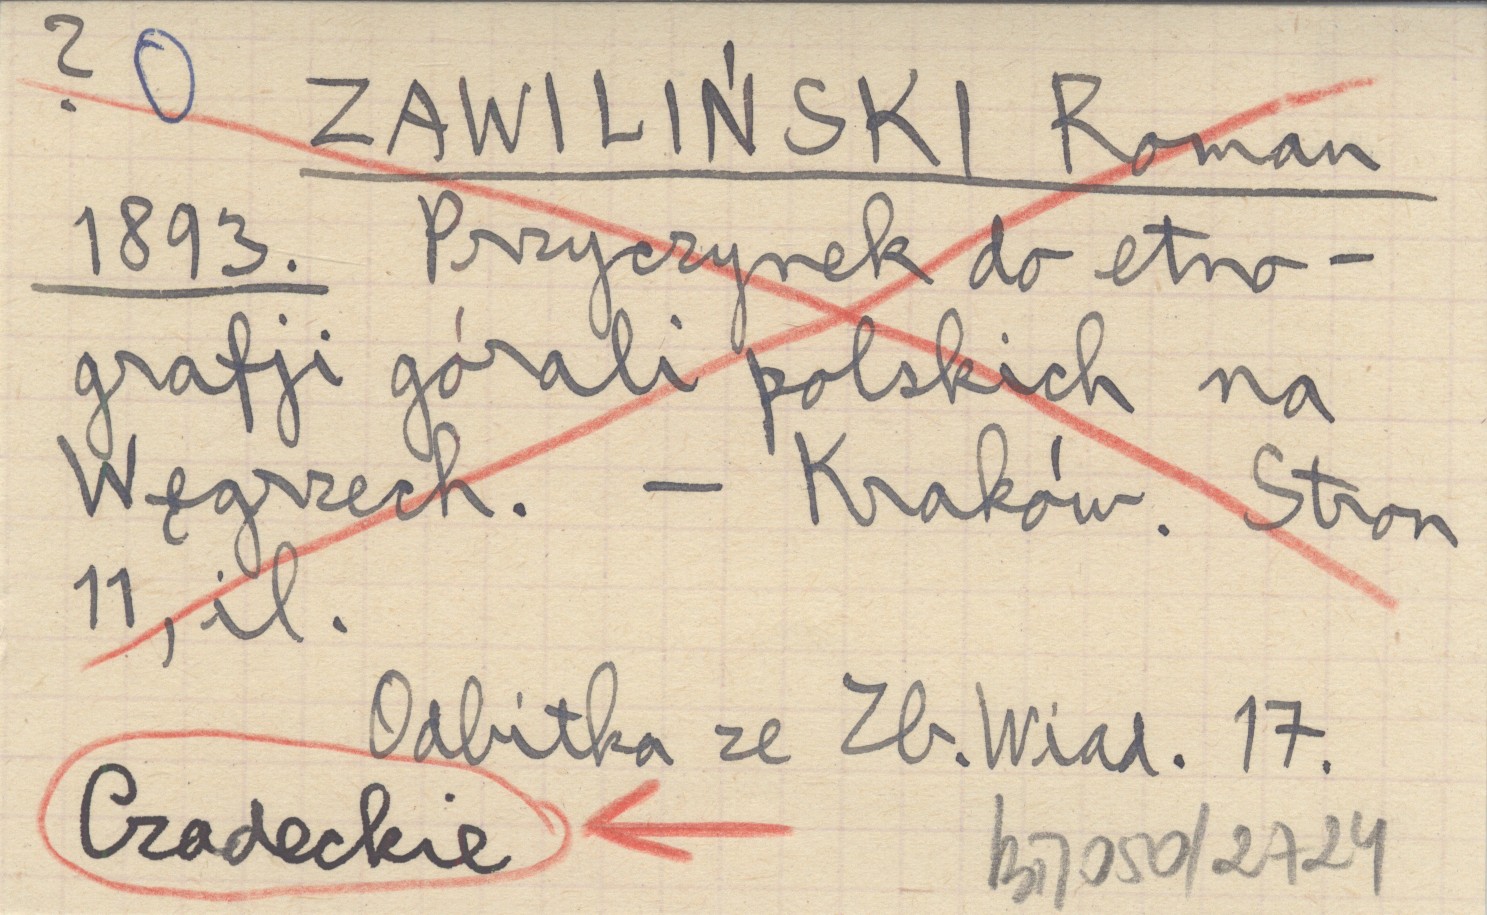 ? O ZAWILIŃSKI Roman
1893. Przyczynek do etno-
grafji górali polskich na
Węgrzech. - Kraków. Stron
11, il.
Odbitka ze Zb. Wiad. 17.
Czadeckie
050/2724